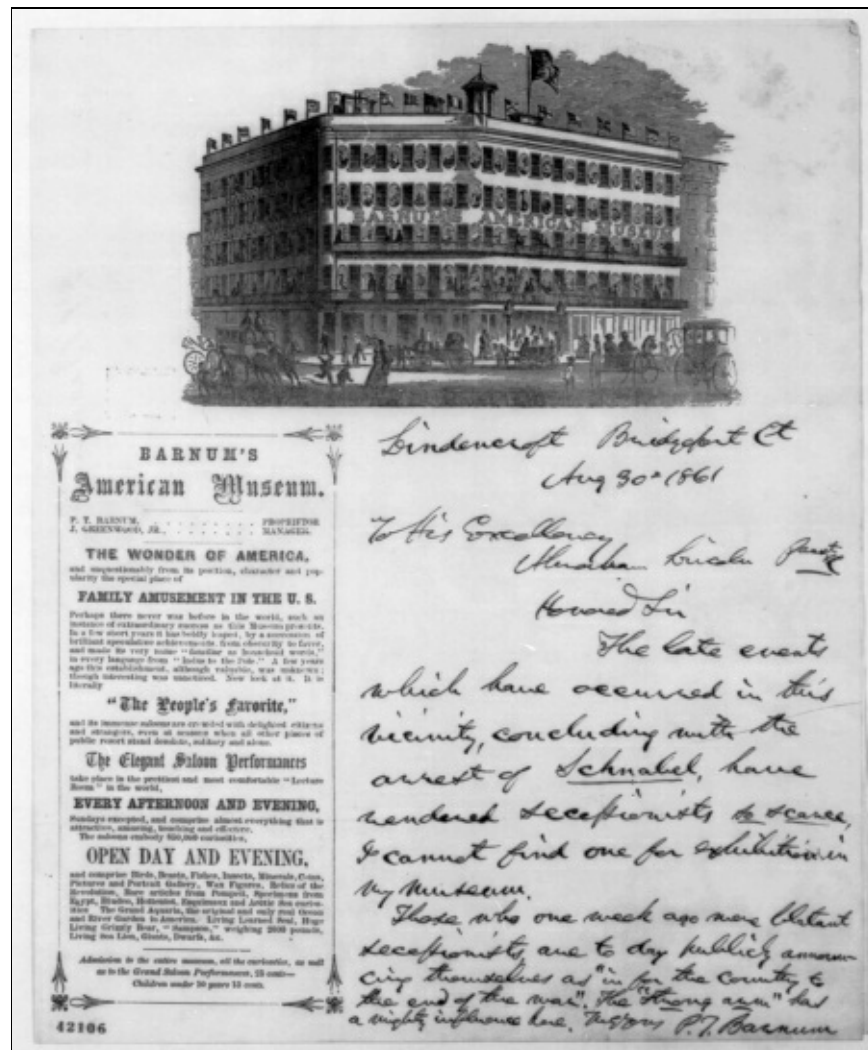 BARNUM'S AMERICAN MUSEUM
BARNUM'S
American Museum.
P. T. BARNUM, . . . . . . . . . . PROPRIETOR
J. GREENWOOD, JR., . . . . . . . . . . MANAGER.
THE WONDER OF AMERICA,
and unquestionably from its position, character and pop-
ularity the special place of
FAMILY AMUSEMENT IN THE U. S.
Perhaps there never was before in the world, such an
instance of extraordinary success as this Museum presents.
In a few short years it has boldly leaped, by a succession of
brilliant speculative achievements, from obscurity to favor,
and made its very name "familiar as household words,"
in every language from "Indus to the Pole." A few years
ago this establishment, although valuable, was unknown;
though interesting was unnoticed. Now look at it. It is
literally
"The People's Favorite,"
and its immense saloons are crowded with delighted citizens
and strangers, even at seasons when all other places of
public resort stand desolate, solitary and alone.
The Elegant Saloon Performances
take place in the prettiest and most comfortable "Lecture
Room" in the world,
EVERY AFTERNOON AND EVENING,
Sundays excepted, and comprise almost everything that is
attractive, amusing, touching and effective.
The saloons embody 850,000 curiosities,
OPEN DAY AND EVENING,
and comprise Birds, Beasts, Fishes, Insects, Minerals, Coins,
Pictures and Portrait Gallery, Wax Figures, Relics of the
Revolution, Rare articles from Pompeii, Specimens from
Egypt, Hindoo, Hottentot, Esquimaux and Arctic Sea curios-
ities The Grand Aquaria, the original and only real Ocean
and River Garden in America. Living Learned Seal, Huge
Living Grizzly Bear, "Sampson," weighing 2000 pounds,
Living Sea Lion, Giants, Dwarfs, &c.
Admission to the entire museum, all the curiosities, as well
as to the Grand Saloon Performances, 25 cents—
Children under 10 years 15 cents.
42106
Lindencroft Bridgeport Ct
Aug 30th 1861
To His Excellency
Abraham Lincoln Prest
Honored Sir
The late events
which have occurred in this
vicinity, concluding with the
arrest of Schnabel, have
rendered secessionists so scarce,
I cannot find one for exhibition in
my museum.
Those who one week ago were blatant
secessionists, are to day publicly announ
cing themselves as "in for the country to
the end of the war". The "strong arm" has
a mighty influence here. P. T. Barnum